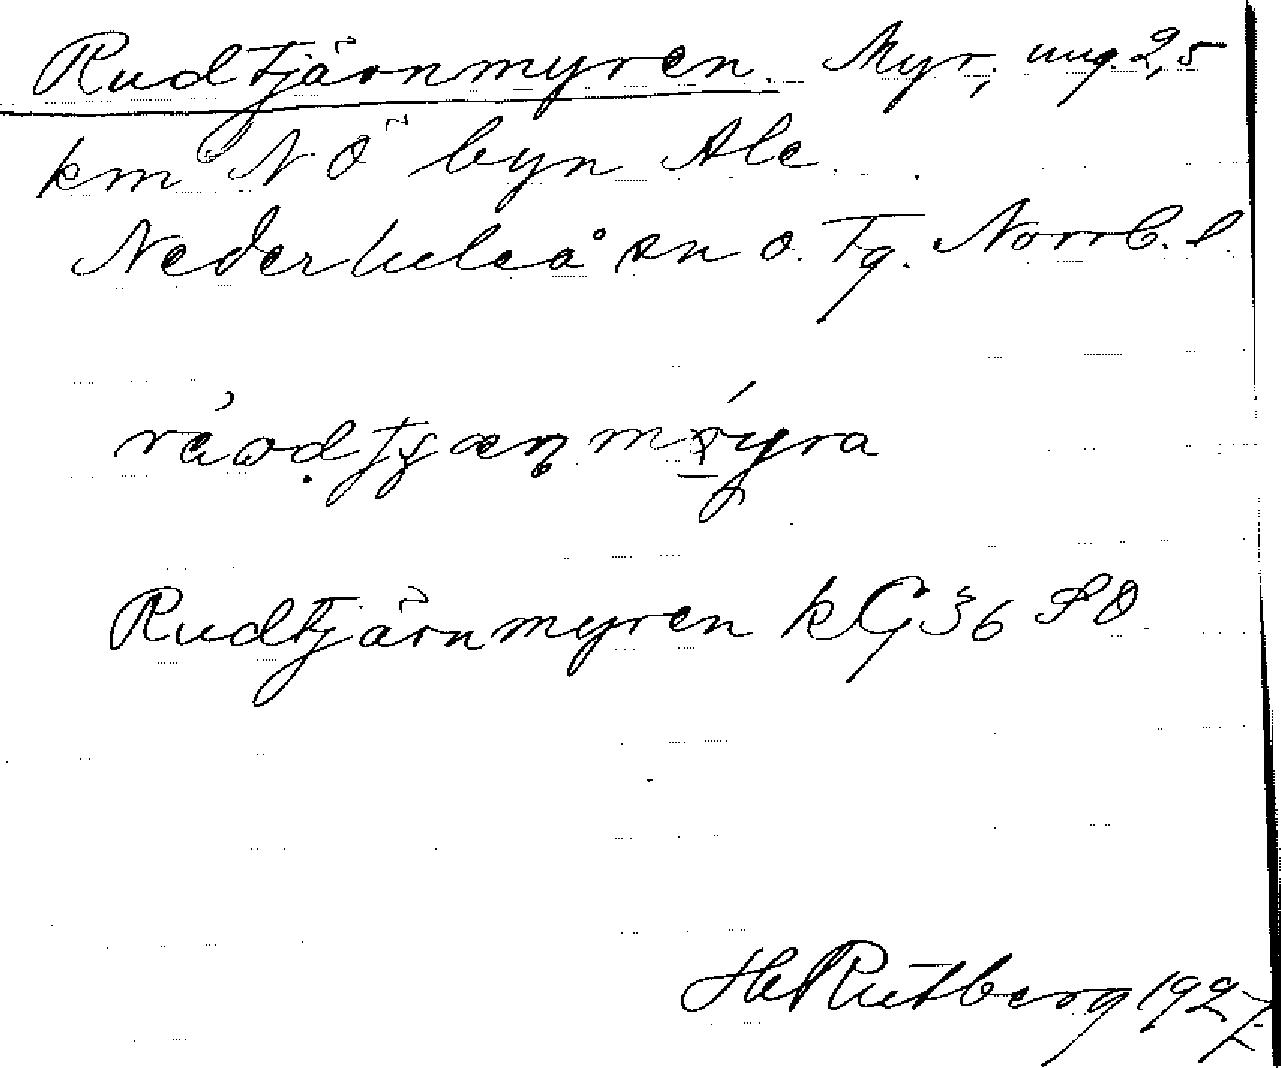 Rudtjärnmyren. Myr, ung. 2,5
km N Ö byn Ale.
Nederluleå sn o. Tg. Norrb. l.
Rudtjärnmyren kG 36 SO
H Rutberg 1927